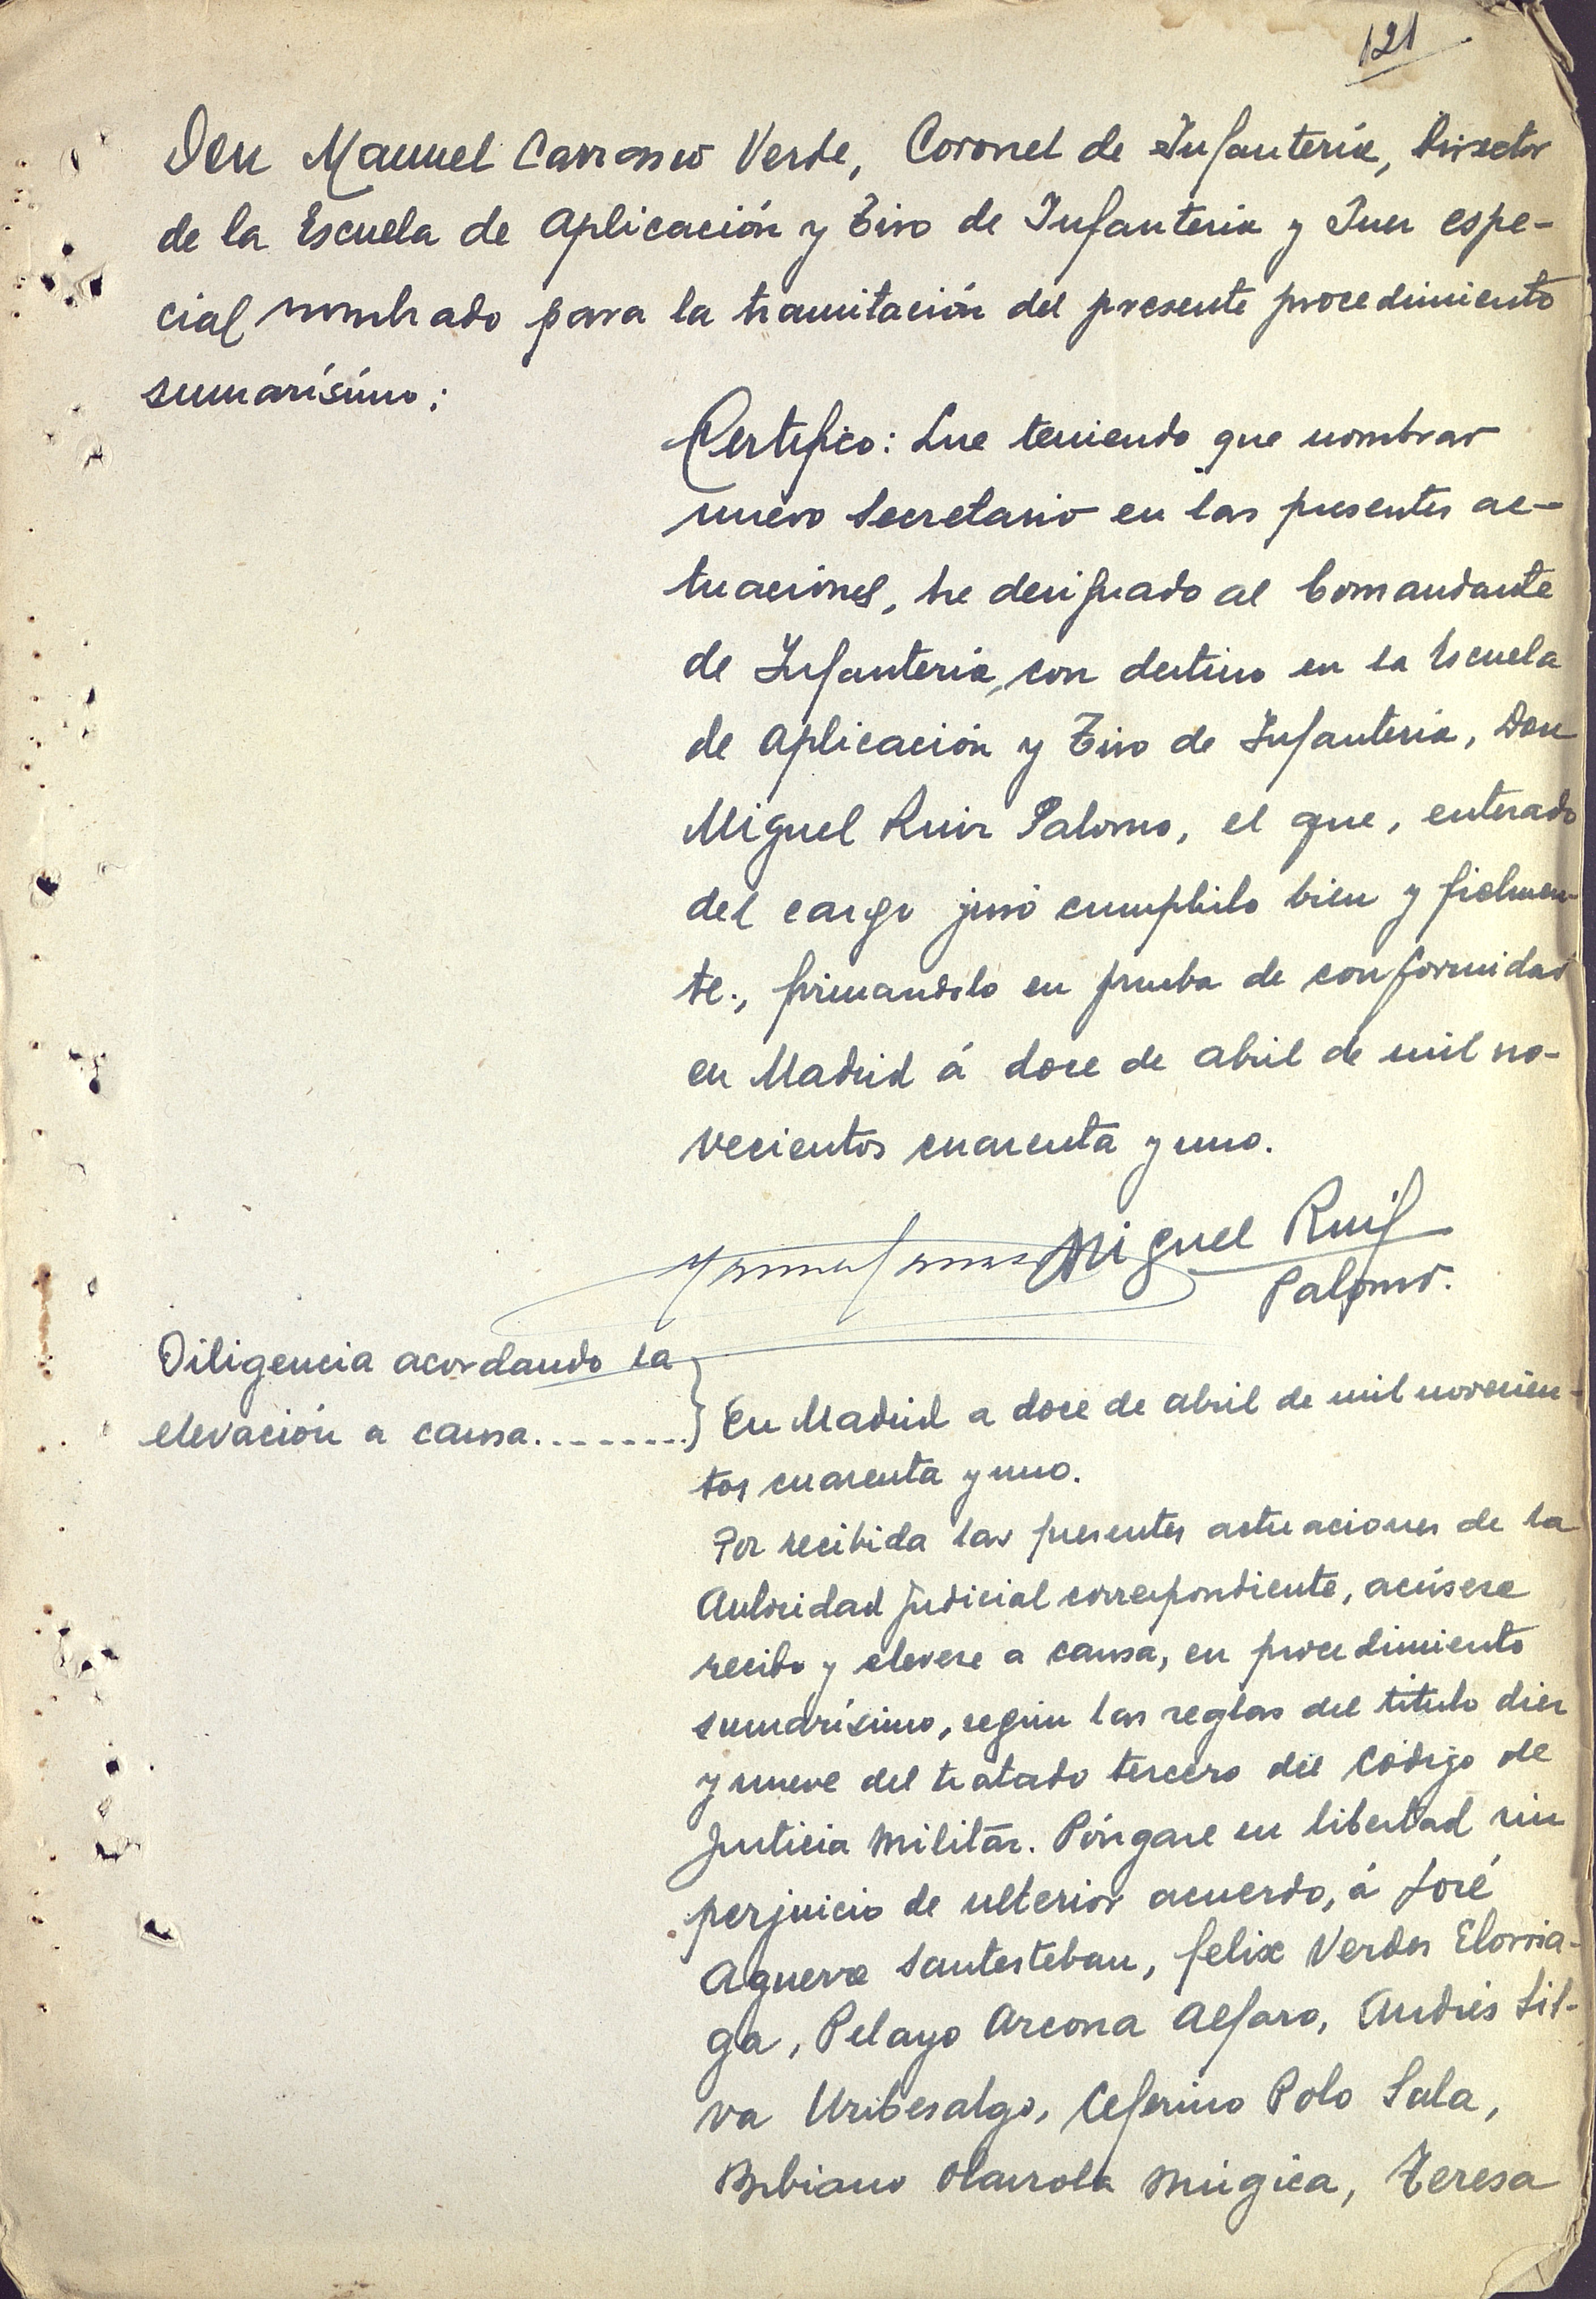 121
Don Manuel Carrasco Verde, Coronel de Infantería, Director
de la Escuela de Aplicación y Tiro de Infantería y Juez espe-
cial nombrado para la tramitación del presente procedimiento
sumarísimo;
Certifico: Que teniendo que nombrar
nuevo Secretario en las presentes ac-
tuaciones, he designado al Comandante
de Infantería, con destino en la Escuela
de Aplicación y Tiro de Infantería, Don
Miguel Ruiz Palomo, el que, enterado
del cargo juró cumplirlo bien y fielmen-
te., firmandolo en prueba de conformidad
en Madrid á doce de abril de mil no-
vecientos cuarenta y uno.
Miguel Ruiz
Palomo.
Diligencia acordando la
elevación a causa.........
En Madrid a doce de abril de mil novecien-
tos cuarenta y uno.
Por recibida las presentes actuaciones de la
Autoridad Judicial correspondiente, acúsese
recibo y elevese a causa, en procedimiento
sumarísimo, según las reglas del titulo diez
y nueve del tratado tercero del Código de
Justicia Militar. Póngase en libertad sin
perjuicio de ulterior acuerdo, á José
Aguerre Santesteban, Felix Verdes Elorria-
ga, Pelayo Arcona Alfaro, Andrés Sil-
va Uribesalgo, Ceferino Polo Sala,
Bibiano Olarrola Múgica, Teresa